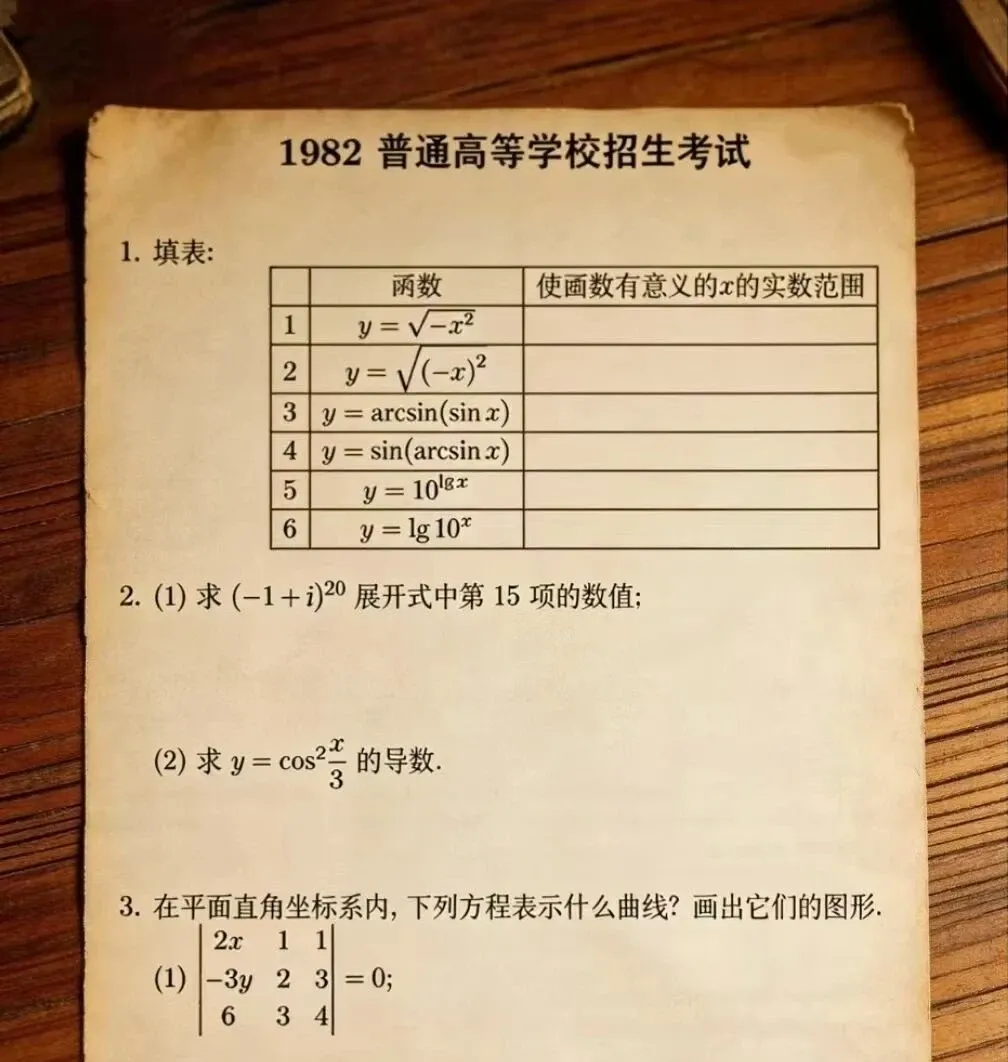 1982 普通高等学校招生考试
1. 填表:
函数 使函数有意义的x的实数范围
1 y = √(-x²)
2 y = √((-x)²)
3 y = arcsin(sin x)
4 y = sin(arcsin x)
5 y = 10^(lg x)
6 y = lg 10^x
2. (1) 求 (-1+i)²⁰ 展开式中第 15 项的数值;
(2) 求 y = cos² x/3 的导数.
3. 在平面直角坐标系内, 下列方程表示什么曲线? 画出它们的图形.
(1) | 2x 1 1 |
| -3y 2 3 | = 0;
| 6 3 4 |